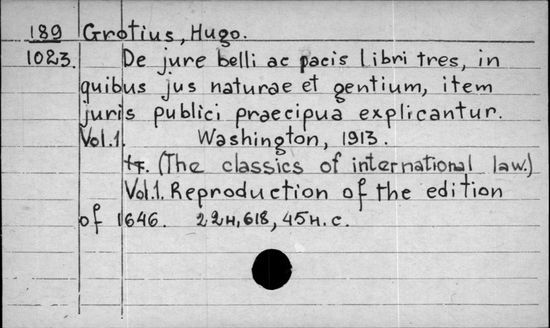 189 Grotius, Hugo.
1023. De jure belli ac pacis libri tres, in
quibus jus naturae et gentium, item
juris publici praecipua explicantur.
Vol.1. Washington, 1913.
(The classics of international law.)
Vol.1. Reproduction of the edition
of 1646. 22н, 618, 45н. c.